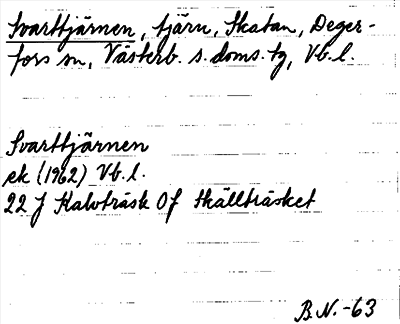 Svarttjärnen, tjärn, Skatan, Deger-
fors sn, Västerb. s. doms. tg, Vb. l.
Svarttjärnen
ek (1962) Vb. l.
22 J Kalvträsk 0f Skällträsket
B.N.-63